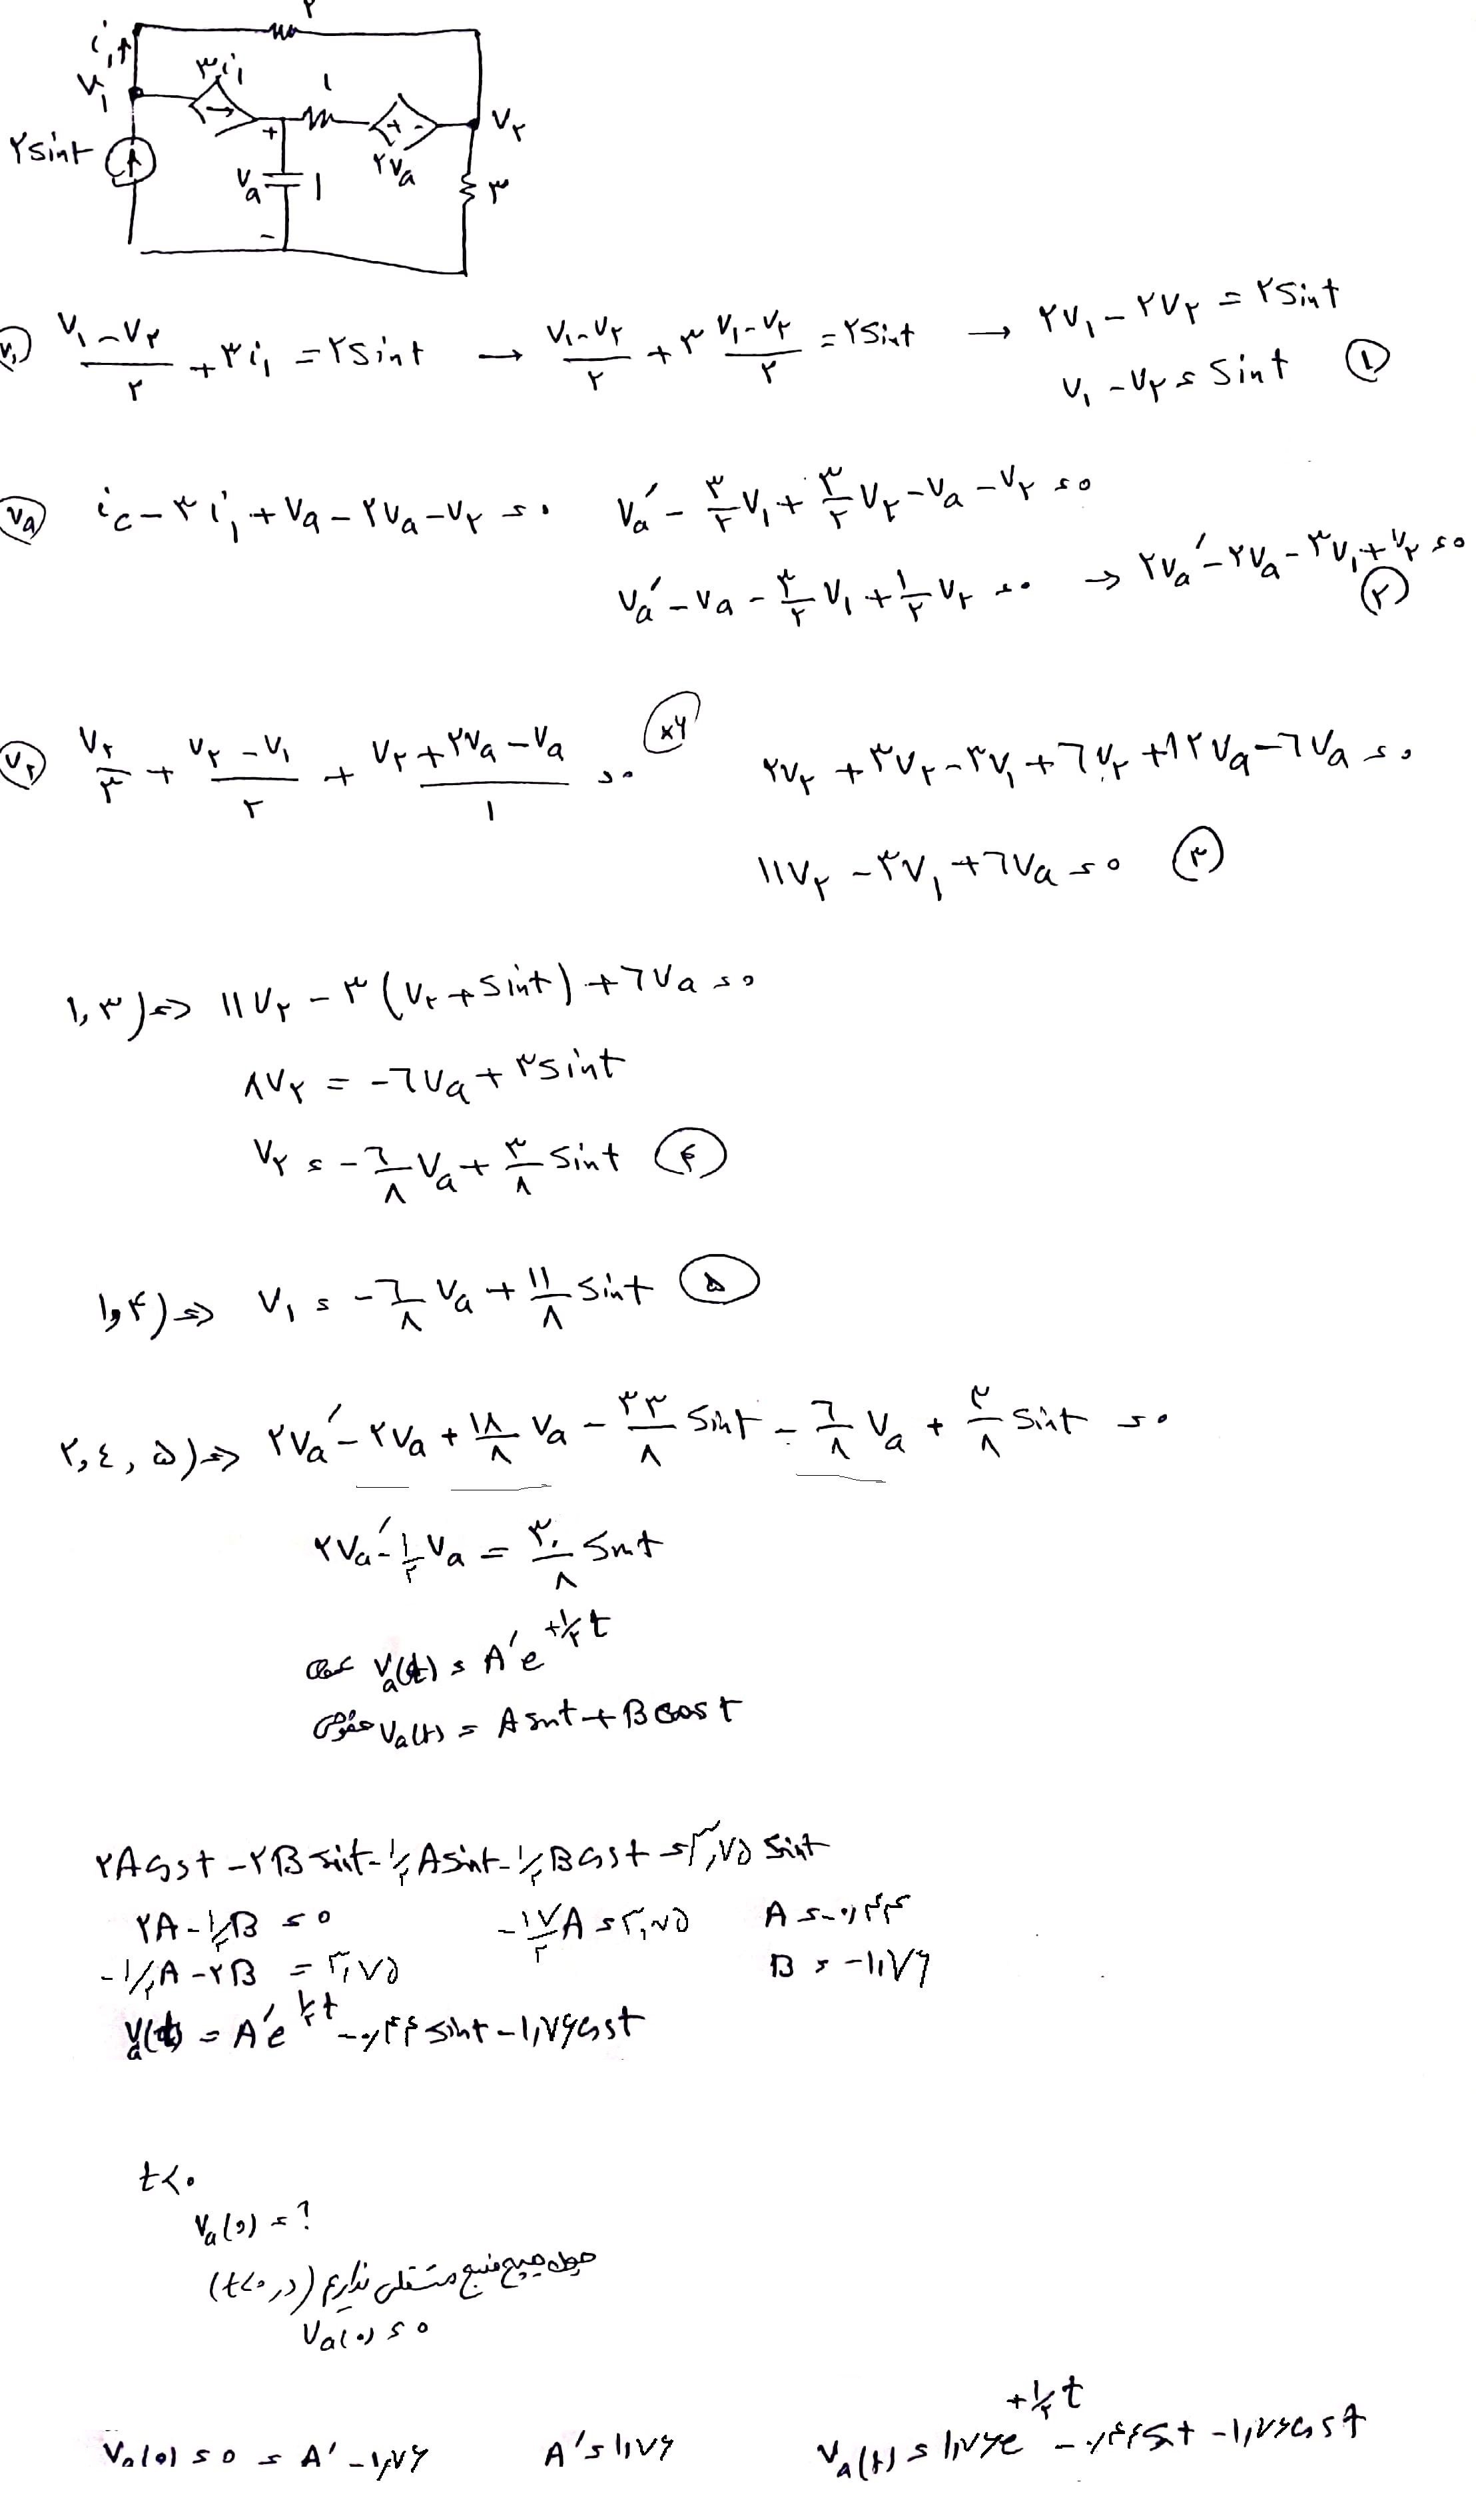 ۲
i₁↑
V₁
۳i₁
۱
+ -
V۲
۲sint
+
Va
-
۱
۲Va
۳
V₁) (V₁-V۲)/۲ + ۳i₁ = ۲sint → (V₁-V۲)/۲ + ۳ (V₁-V۲)/۲ = ۲sint → ۲V₁ - ۲V۲ = ۲sint
V₁ - V۲ = sint ①
Va) ic - ۳i₁ + Va - ۲Va - V۲ = ۰   Va′ - ۳/۲ V₁ + ۳/۲ V۲ - Va - V۲ = ۰
Va′ - Va - ۳/۲ V₁ + ۱/۲ V۲ = ۰ → ۲Va′ - ۲Va - ۳V₁ + V۲ = ۰ (۲)
V۲) V۲/۳ + (V۲ - V₁)/۲ + (V۲ + ۲Va - Va)/۱ = ۰ (×۶)   ۲V۲ + ۳V۲ - ۳V₁ + ٦V۲ + ۱۲Va - ٦Va = ۰
۱۱V۲ - ۳V₁ + ٦Va = ۰ (۳)
۱,۳) => ۱۱V۲ - ۳(V۲ + sint) + ٦Va = ۰
۸V۲ = -٦Va + ۳sint
V۲ = -٦/۸ Va + ۳/۸ sint (۴)
۱,۴) => V₁ = -٦/۸ Va + ۱۱/۸ sint (۵)
۲,٤,۵) => ۲Va′ - ۲Va + ۱۸/۸ Va - ۳۳/۸ sint - ٦/۸ Va + ۳/۸ sint = ۰
۲Va′ - ۱/۲ Va = ۳۰/۸ sint
Va(t) = A′e^{+۱/۲ t}
خصوصی Va(t) = A sint + B cost
۲A cost - ۲B sint - ۱/۲ A sint - ۱/۲ B cost = ۳,۷۵ sint
۲A - ۱/۲ B = ۰   -۱۷/۲ A = ۳,۷۵   A = -۰,۴۴
-۱/۲ A - ۲B = ۳,۷۵   B = -۱,۷۶
Va(t) = A′e^{۱/۲ t} - ۰,۴۴ sint - ۱,۷۶ cost
t<۰
Va(۰) = ?
چون هیچ منبع مستقلی نداریم (در t<۰)
Va(۰) = ۰
Va(۰) = ۰ = A′ - ۱,۷۶   A′ = ۱,۷۶   Va(t) = ۱,۷۶e^{+۱/۲ t} - ۰,۴۴ sint - ۱,۷۶ cost